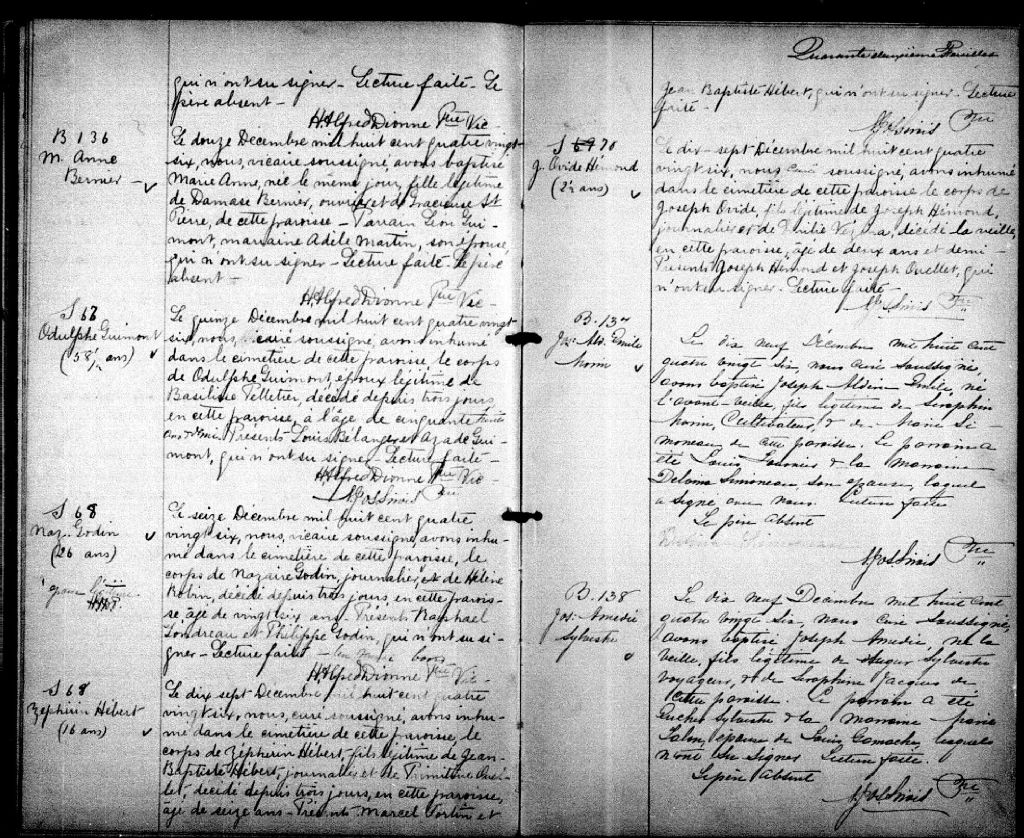 qui n'ont su signer - Lecture faite - Le
père absent -
H. Alfred Dionne Ptre Vic -
B 136
M. Anne
Bernier -
Le douze Décembre mil huit cent quatre vingt
six, nous, vicaire soussigné, avons baptisé
Marie Anne, née le même jour, fille légitime
de Damase Bernier, ouvrier et de Gracieuse St
Pierre, de cette paroisse - Parrain Léon Gui-
mont, marraine Adèle Martin, son épouse,
qui n'ont su signer - Lecture faite - Le père
absent -
H. Alfred Dionne Ptre Vic -
S 67
Odulphe Guimont
(58½ ans)
Le quinze Décembre mil huit cent quatre vingt
six, nous, vicaire soussigné, avons inhumé
dans le cimetière de cette paroisse, le corps
de Odulphe Guimont, époux légitime de
Basilisse Pelletier, décédé depuis trois jours
en cette paroisse, à l'âge de cinquante huit
ans & demi. Présents Louis Bélanger et Aza de Gui-
mont, qui n'ont su signer - Lecture faite -
H. Alfred Dionne Ptre Vic -
Ptre
S 68
Naz. Godin
(26 ans)
Le seize Décembre mil huit cent quatre
vingt six, nous, vicaire soussigné, avons inhu-
mé dans le cimetière de cette paroisse, le
corps de Nazaire Godin, journalier, et de Hélène
décédé depuis trois jours en cette parois-
se âgé de vingt six ans - Présents Raphael
Gondreau et Philippe Godin, qui n'ont su si-
gner - Lecture faite -
H. Alfred Dionne Ptre Vic -
S 68
Zéphirin Hébert
(16 ans)
Le dix sept Décembre mil huit cent quatre
vingt six, nous, curé soussigné, avons inhu-
mé dans le cimetière de cette paroisse, le
corps de Zéphirin Hébert, fils légitime de Jean-
Baptiste Hébert, journalier et de
décédé depuis trois jours, en cette paroisse,
âgé de seize ans - Présents Marcel Fortin et
Quarante deuxième Feuillet
Jean Baptiste Hébert, qui n'ont su signer - Lecture
faite -
Ptre
S 69 70
J. Ovide Hémond
(2½ ans)
Le dix-sept Décembre mil huit cent quatre
vingt six, nous curé soussigné, avons inhumé
dans le cimetière de cette paroisse le corps de
Joseph Ovide, fils légitime de Joseph Hémond,
journalier et de décédé la veille,
en cette paroisse, âgé de deux ans et demi -
Présents Joseph Hémond et Joseph Ouellet, qui
n'ont su signer. Lecture faite -
Ptre
B. 137
Jos. Ald. Emile
Morin
Le dix neuf Décembre mil huit cent
quatre vingt six, nous curé soussigné,
avons baptisé Joseph Emile, né
l'avant-veille, fils légitime de Séraphin
Morin, Cultivateur, & de Marie Si-
moneau de cette paroisse. Le parrain a
été Louis & la marraine
Simoneau, son épouse, laquelle
a signé avec nous. Lecture faite
Le père absent
Ptre
B. 138
Jos. Amedié
Sylvestre
Le dix neuf Décembre mil huit cent
quatre vingt six, nous curé soussigné,
avons baptisé Joseph Amedié, né la
veille, fils légitime de Sylvestre
voyageur, & de Séraphine Jacques de
cette paroisse. Le parrain a été
Sylvestre & la marraine Marie
épouse de Louis Gamache, lesquels
n'ont su signer. Lecture faite.
Le père absent
Ptre